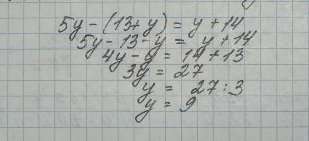 5y - (13 + y) = y + 14
5y - 13 - y = y + 14
4y - y = 14 + 13
3y = 27
y = 27 : 3
y = 9